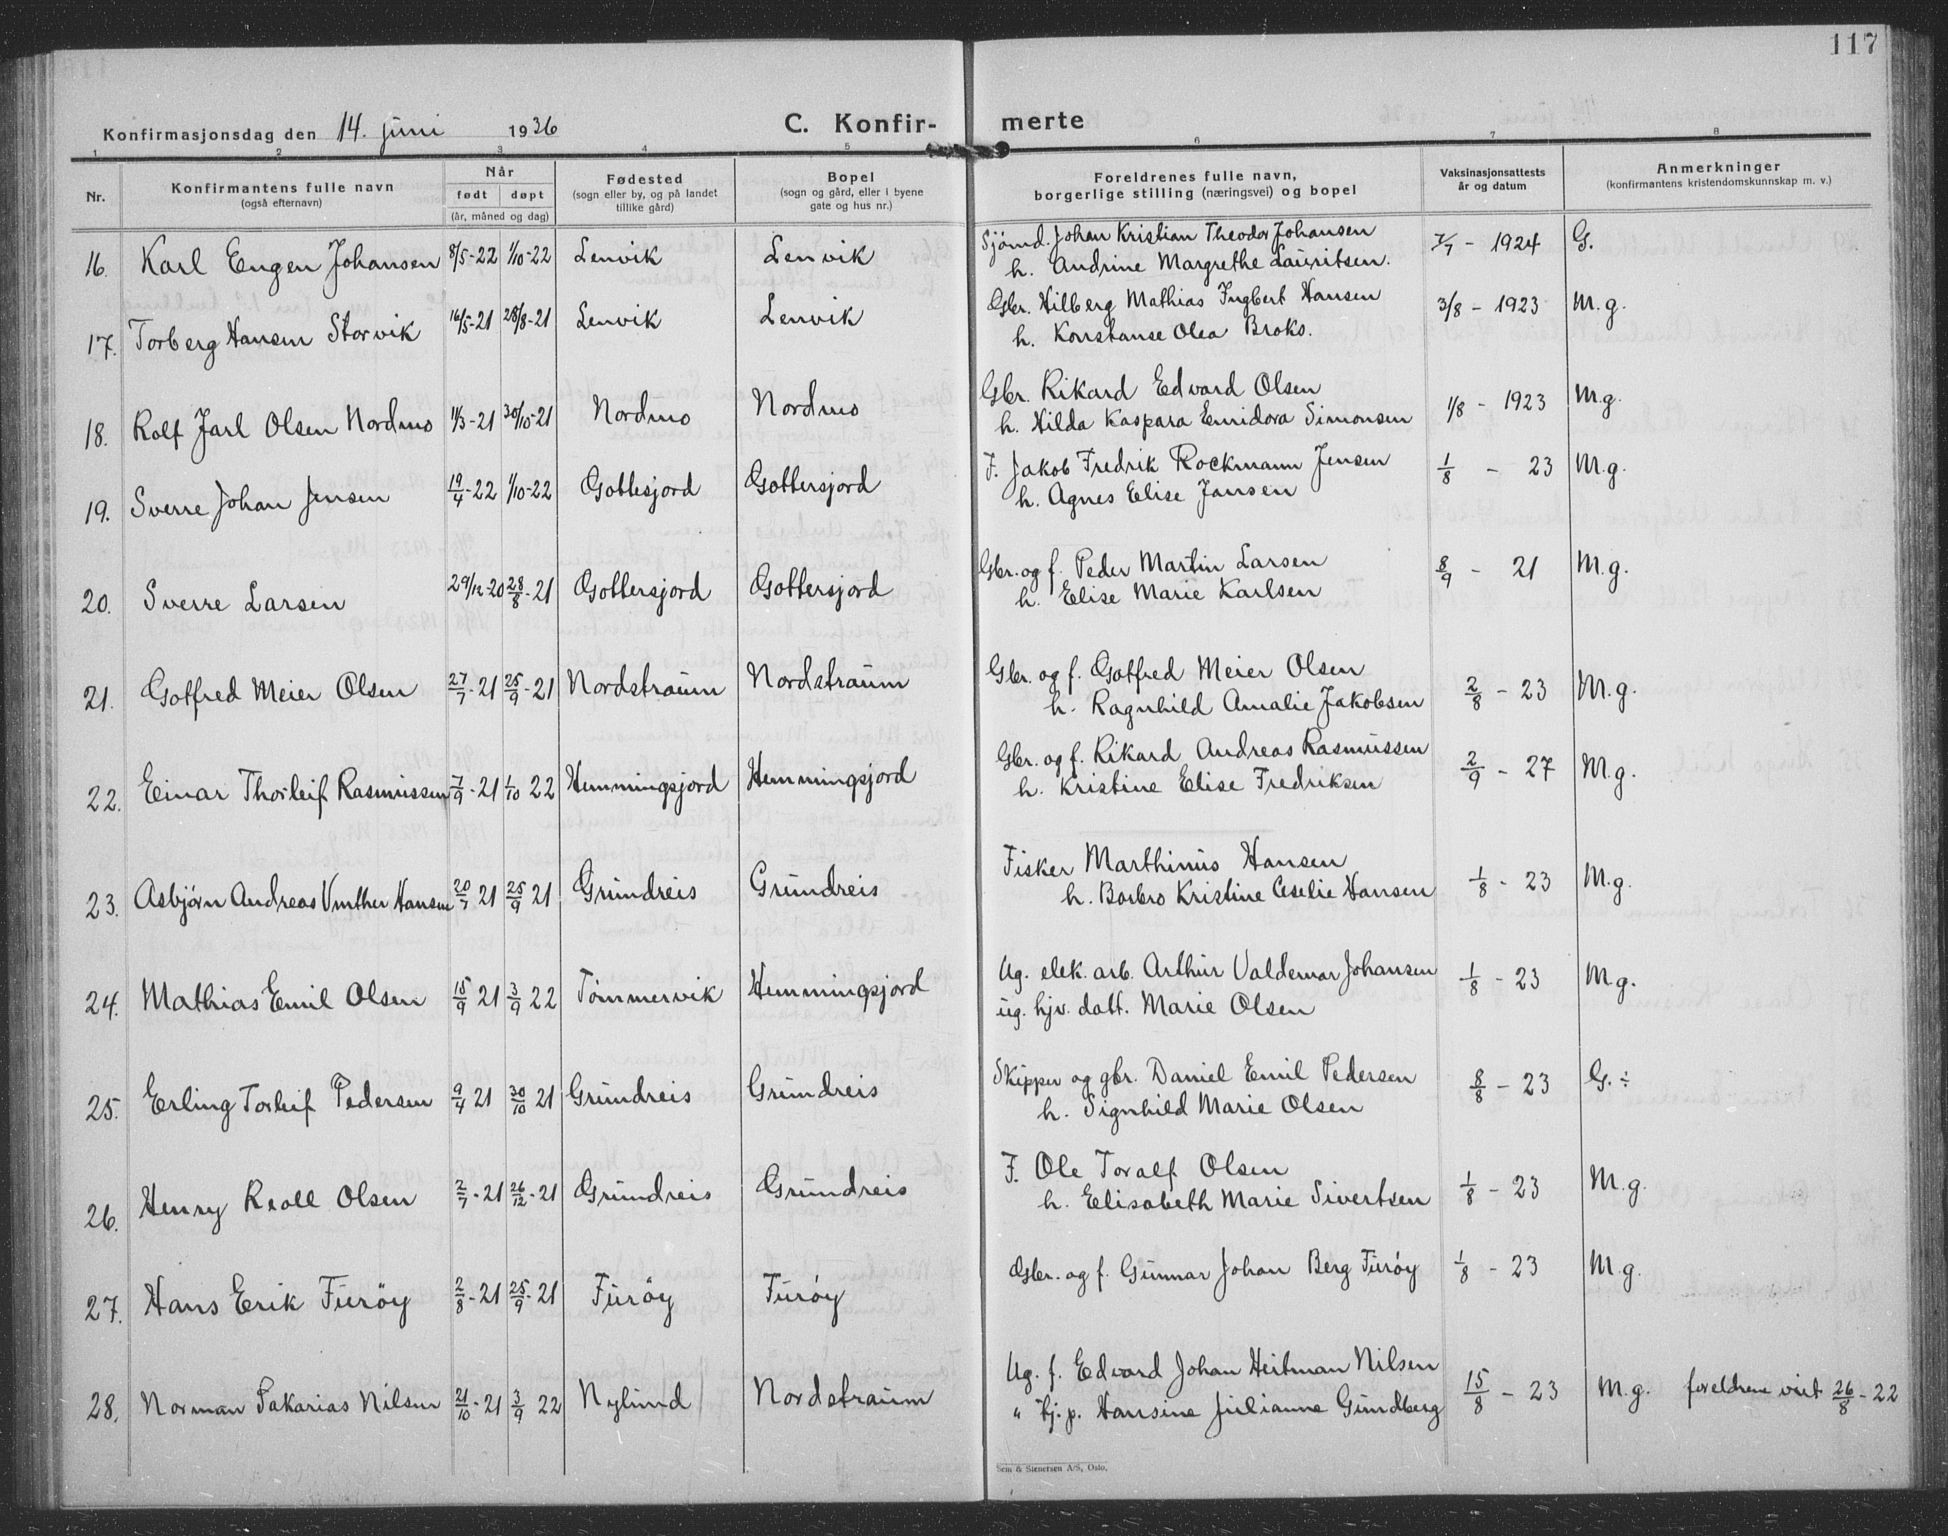 117
Konfirmasjonsdag den 14. juni 1936 C. Konfir- merte
1 2 3 4 5 6 7 8
Nr. Konfirmantens fulle navn (også efternavn) Når født døpt (år, måned og dag) Fødested (sogn eller by, og på landet tillike gård) Bopel (sogn og gård, eller i byene gate og hus nr.) Foreldrenes fulle navn, borgerlige stilling (næringsvei) og bopel Vaksinasjonsattests år og datum Anmerkninger (konfirmantens kristendomskunnskap m. v.)
16. Karl Eugen Johansen 8/5-22 1/10-22 Lenvik Lenvik Sjömd. Johan Kristian Theodor Johansen 7/7 - 1924 G.
h. Andrine Margrethe Lauritsen.
17. Torberg Hansen Storvik 16/5-21 28/8-21 Lenvik Lenvik Gbr. Hilberg Mathias Ingbert Hansen 3/8 - 1923 M.g.
h. Konstanse Olea Broks.
18. Rolf Jarl Olsen Nordmo 11/3-21 30/10-21 Nordmo Nordmo Gbr. Rikard Edvard Olsen 1/8 - 1923 M.g.
h. Hilda Kaspara Enridora Simonsen
19. Sverre Johan Jensen 19/4-22 1/10-22 Gottesjord Gottersjord F. Jakob Fredrik Rockmann Jensen 1/8 - 23 M.g.
h. Agnes Elise Jansen
20. Sverre Larsen 29/12-20 28/8-21 Gottersjord Gottersjord Gbr. og f. Peder Martin Larsen 8/9 - 21 M.g.
h. Elise Marie Karlsen
21. Gotfred Meier Olsen 27/7-21 25/9-21 Nordstraum Nordstraum Gbr. og f. Gotfred Meier Olsen 2/8 - 23 M.g.
h. Ragnhild Amalie Jakobsen
22. Einar Thorleif Rasmussen 7/9-21 1/10 22 Hemmingsjord Hemmingsjord Gbr. og f. Rikard Andreas Rasmussen 2/9 - 27 M.g.
h. Kristine Elise Fredriksen
23. Asbjørn Andreas Vinther Hansen 20/7 21 25/9 21 Grundreis Grundreis Fisker Marthinus Hansen 1/8 - 23 M.g.
h. Barbro Kristine Ceselie Hansen
24. Mathias Emil Olsen 15/9 21 3/9 22 Tömmervik Hemmingsjord Ug. elek. arb. Arthur Valdemar Johansen 1/8 - 23 M.g.
ug. hjv. datt. Marie Olsen
25. Erling Torleif Pedersen 9/4 21 30/10 21 Grundreis Grundreis Skipper og gbr. Daniel Emil Pedersen 8/8 - 23 G. ÷
h. Signhild Marie Olsen
26. Henry Reall Olsen 2/7-21 26/12-21 Grundreis Grundreis F. Ole Toralf Olsen 1/8 - 23 M.g.
h. Elisabeth Marie Sivertsen
27. Hans Erik Furöy 2/8-21 25/9-21 Furöy Furöy Gbr. og f. Gunnar Johan Berg Furöy 1/8 - 23 M.g.
28. Norman Sakarias Nilsen 21/10-21 3/9 22 Nylund Nordstraum Ug. f. Edvard Johan Heitman Nilsen 15/8 - 23 M.g. foreldrene viet 26/8-22
" tj. p. Hansine Julianne Gundberg
Sem & Stenersen A/S, Oslo.